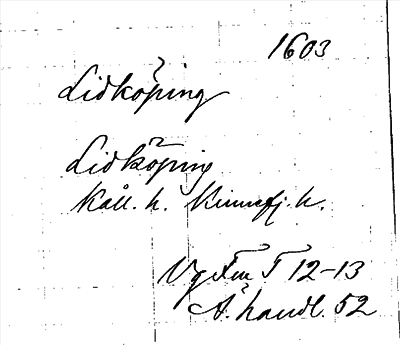 1603
Lidköping
Lidköping
Kåll. h. Kinnefj. h.
VgFmT 12-13
Ä. handl. 52